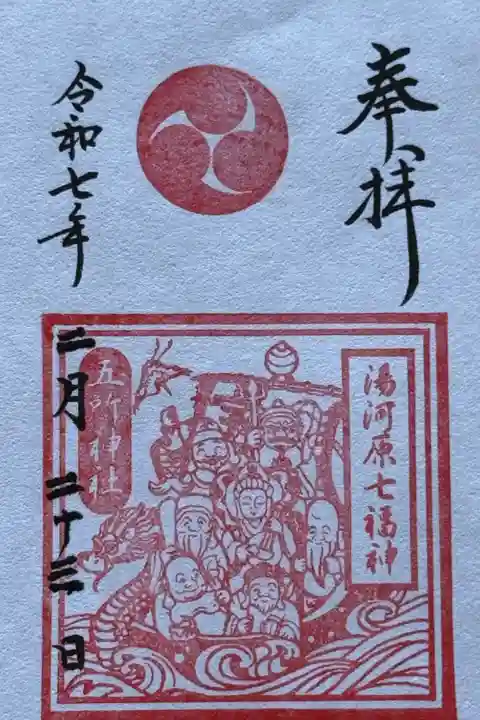 奉拝
湯河原七福神
五所神社
令和七年
二月二十三日